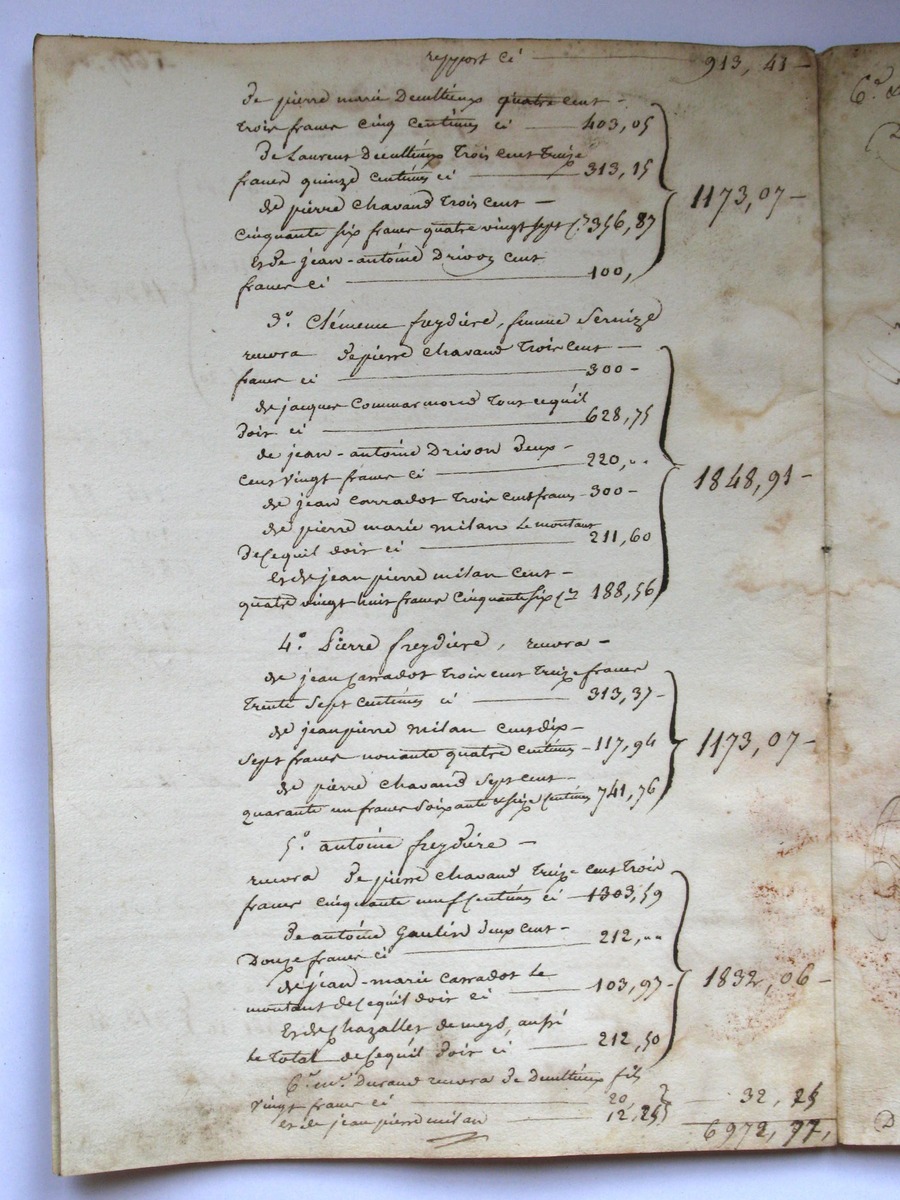 report ci 913, 41
de pierre marie Decultieux quatre cent
trois francs cinq centimes ci 403,05
de Laurent Decultieux trois cent treize
francs quinze centimes ci 313,15
de pierre chavand trois cent
cinquante six francs quatre vingt sept c.es 356,87
1173,07
Et de jean-antoine Drivon cent
francs ci 100,
3.o Clémence freydière, femme Servize
recevra de pierre chavand trois cent
francs ci 300
de jacques Commarmond tout ce qu'il
doit ci 628,75
de jean-antoine Drivon deux
cent vingt francs ci 220, "
1848,91
de jean Carradot trois cent francs 300
de pierre marie milan le montant
de ce quil doit ci 211,60
et de jean pierre milan cent
quatre vingt huit francs cinquante six c.es 188,56
4.o Pierre freydière, recevra
de jean Carradot trois cent treize francs
trente sept centimes ci 313,37
de jean pierre milan cent dix
sept francs nonante quatre centimes 117,94
1173,07
de pierre chavand sept cent
quarante un francs soixante & seize centimes 741,76
5.o antoine freydière
recevra de pierre chavand treize cent trois
francs cinquante neuf centimes ci 1303,59
de antoine Gaulin deux cent
Douze francs ci 212, "
1832,06
de jean-marie Carradot le
montant de ce quil doit ci 103,97
Et de Chazalles de meys, aussi
le total de ce quil doit ci 212,50
6.o m.r Durand recevra de Decultieux fils
vingt francs ci 20
32, 25
et de jean pierre milan 12,25
6972, 77,